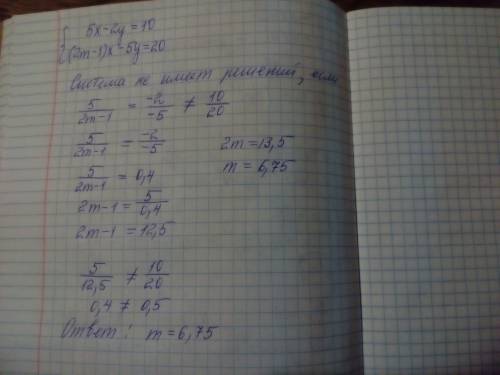 { 5x-2y=10
(2m-1)x-5y=20
Система не имеет решений, если
5/(2m-1) = -2/-5 ≠ 10/20
5/(2m-1) = -2/-5
5/(2m-1) = 0,4
2m-1 = 5/0,4
2m-1 = 12,5
2m = 13,5
m = 6,75
5/12,5 ≠ 10/20
0,4 ≠ 0,5
Ответ: m = 6,75